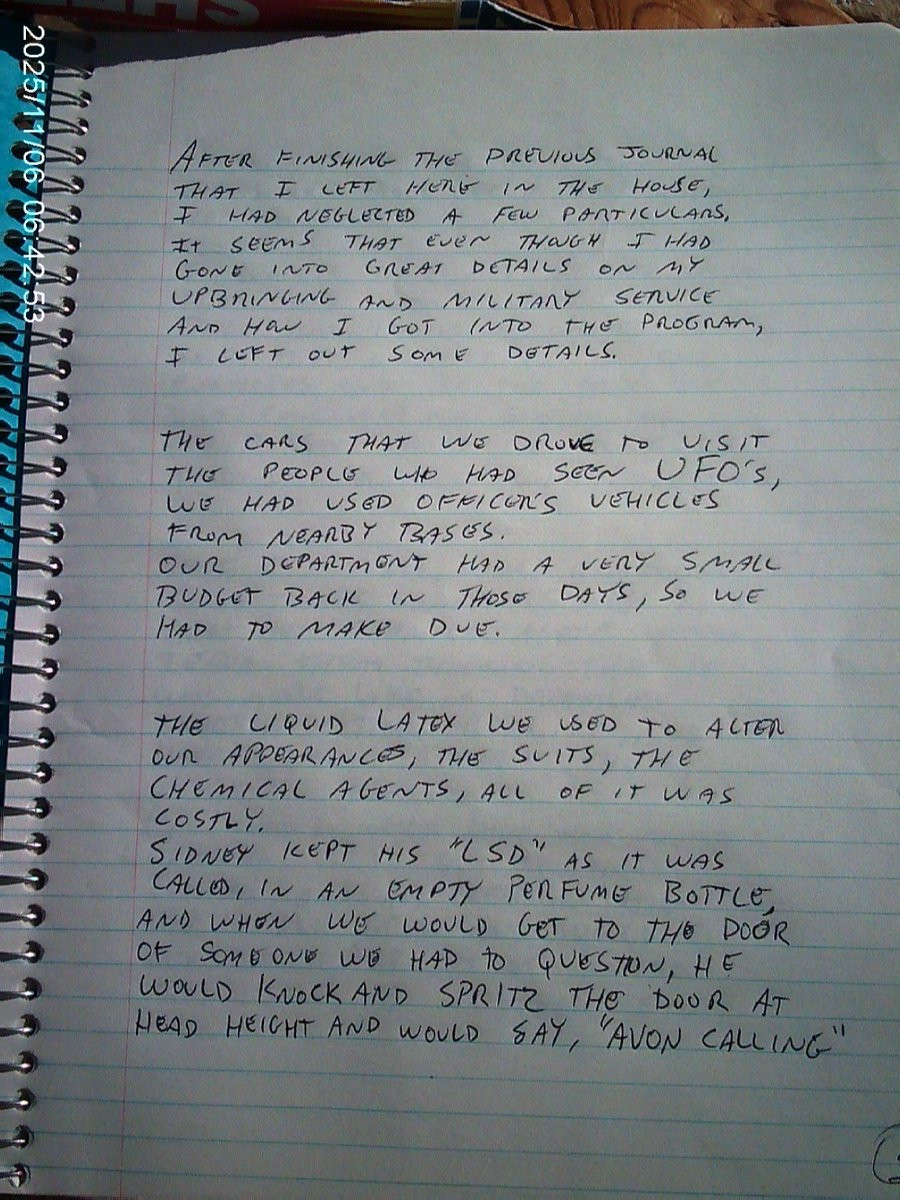 SHE
2025/11/06 06:42:53
AFTER FINISHING THE PREVIOUS JOURNAL
THAT I LEFT HERE IN THE HOUSE,
I HAD NEGLECTED A FEW PARTICULARS.
IT SEEMS THAT EVEN THOUGH I HAD
GONE INTO GREAT DETAILS ON MY
UPBRINGING AND MILITARY SERVICE
AND HOW I GOT INTO THE PROGRAM,
I LEFT OUT SOME DETAILS.
THE CARS THAT WE DROVE TO VISIT
THE PEOPLE WHO HAD SEEN UFO'S,
WE HAD USED OFFICER'S VEHICLES
FROM NEARBY BASES.
OUR DEPARTMENT HAD A VERY SMALL
BUDGET BACK IN THOSE DAYS, SO WE
HAD TO MAKE DUE.
THE LIQUID LATEX WE USED TO ALTER
OUR APPEARANCES, THE SUITS, THE
CHEMICAL AGENTS, ALL OF IT WAS
COSTLY.
SIDNEY KEPT HIS "LSD" AS IT WAS
CALLED, IN AN EMPTY PERFUME BOTTLE,
AND WHEN WE WOULD GET TO THE DOOR
OF SOMEONE WE HAD TO QUESTON, HE
WOULD KNOCK AND SPRITZ THE DOOR AT
HEAD HEIGHT AND WOULD SAY, "AVON CALLING"